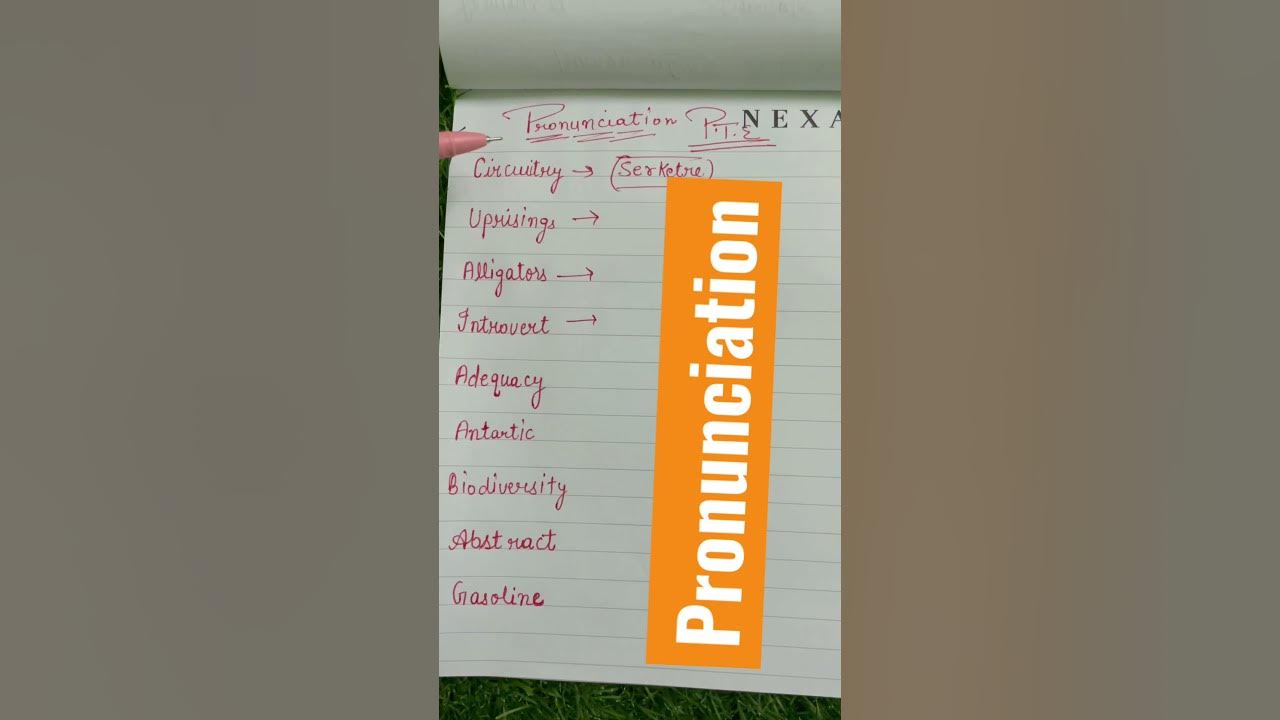 Pronunciation P.T.E NEXA
Circuitry → (Serketre)
Uprisings →
Alligators →
Introvert →
Adequacy
Antartic
Biodiversity
Abstract
Gasoline
Pronunciation